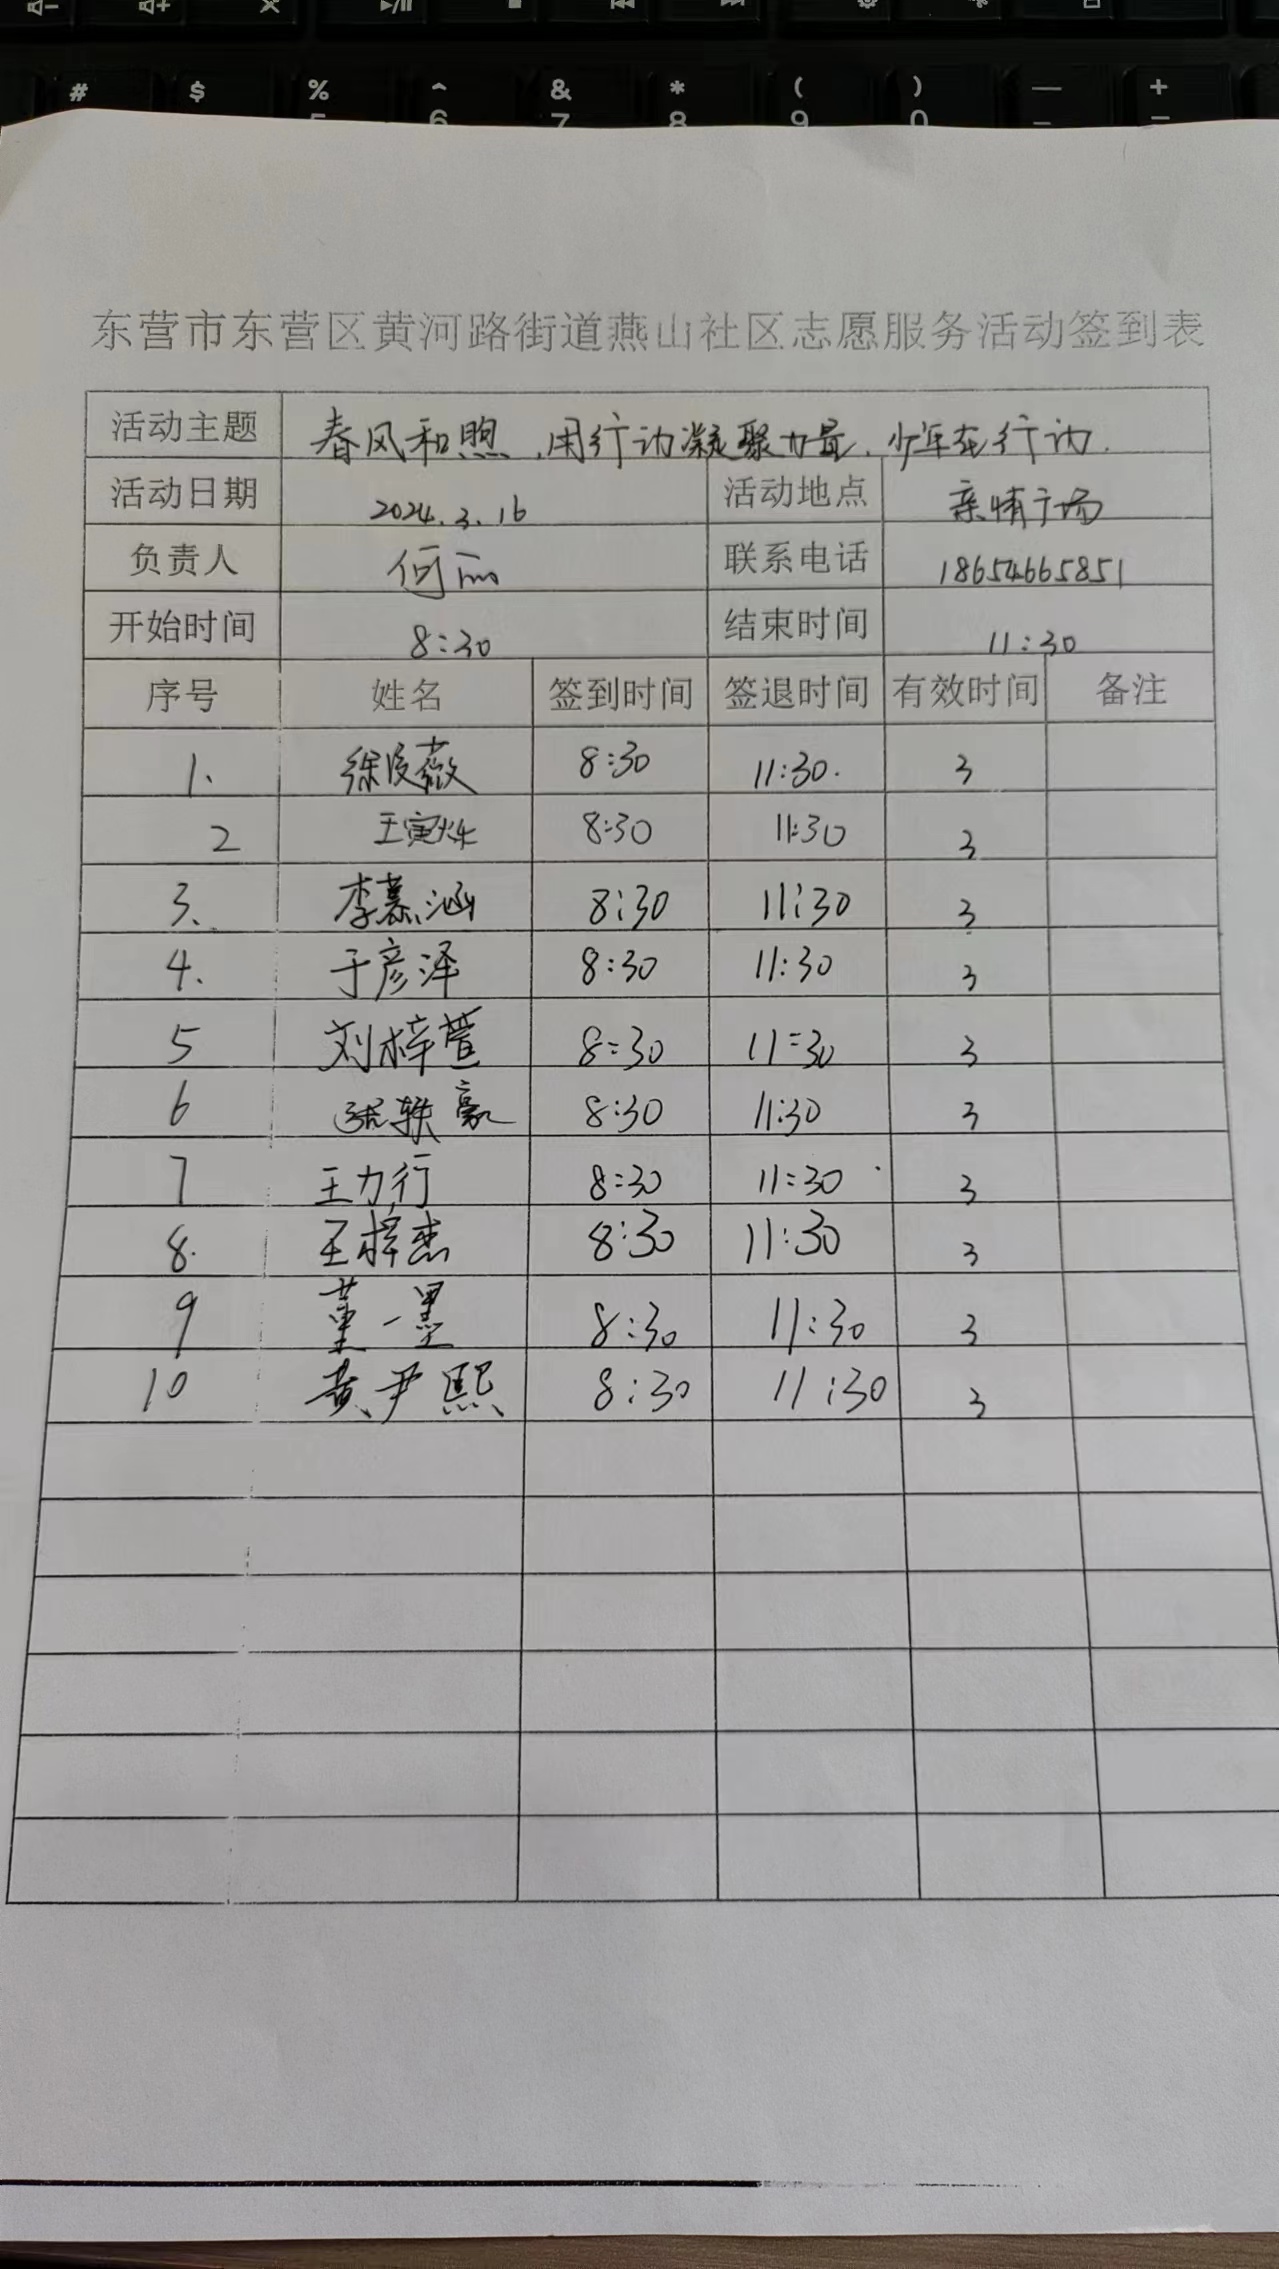 # $ % ^ & * ( ) — +
5 6 7 8 9 0 – =
东营市东营区黄河路街道燕山社区志愿服务活动签到表
活动主题 春风和煦,用行动凝聚力量,少年在行动.
活动日期 2024.3.16 活动地点 亲情广场
负责人 何丽 联系电话 18654665851
开始时间 8:30 结束时间 11:30
序号 姓名 签到时间 签退时间 有效时间 备注
1. 8:30 11:30. 3
2 8:30 11:30 3
3. 李慕涵 8:30 11:30 3
4. 于彦泽 8:30 11:30 3
5 刘梓萱 8:30 11:30 3
6 张轶豪 8:30 11:30 3
7 王力行 8:30 11:30 3
8. 王梓杰 8:30 11:30 3
9 董一墨 8:30 11:30 3
10 黄尹熙 8:30 11:30 3